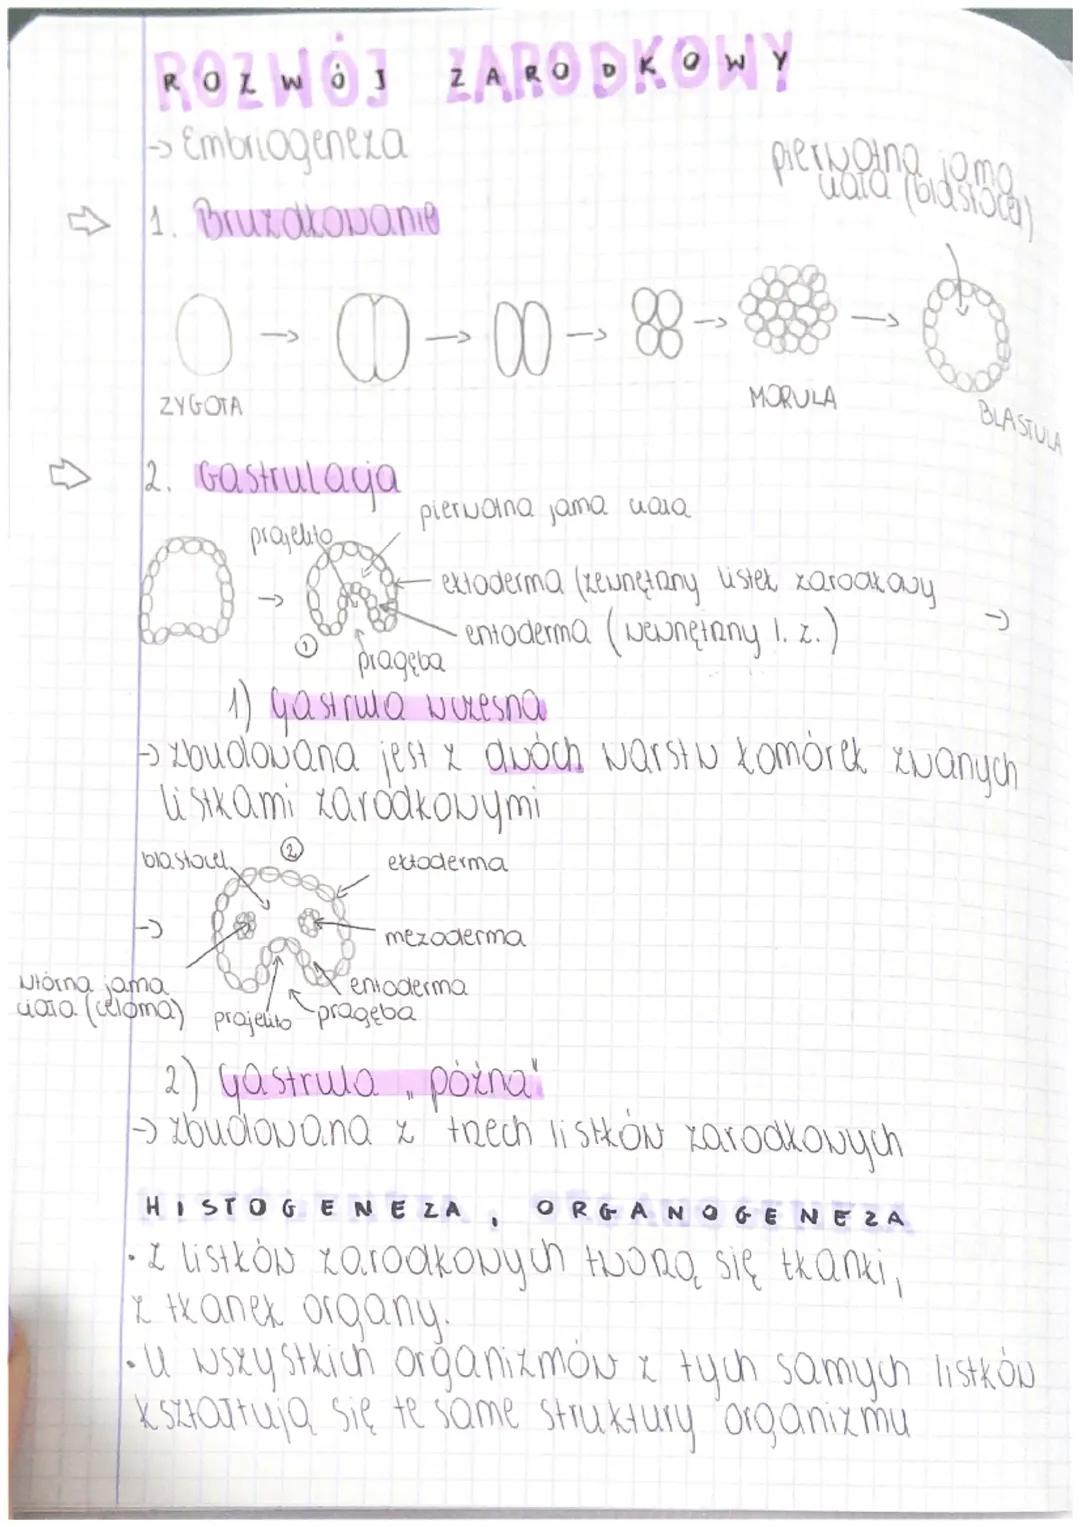 ROZWÓJ ZARODKOWY
→ Embriogeneza
pierwotna jama
ciała (blastocel)
⇨ 1. Bruzdkowanie
ZYGOTA
MORULA
BLASTULA
⇨ 2. Gastrulacja
pierwotna jama ciała
prajelito
ektoderma (zewnętrzny listek zarodkowy
entoderma (wewnętrzny l. z.)
①
pragęba
1) Gastrula wczesna
→ zbudowana jest z dwóch warstw komórek zwanych
listkami zarodkowymi
②
blastocel
ektoderma
mezoderma
wtórna jama
ciała (celoma)
entoderma
prajelito
pragęba
2) Gastrula „późna"
→ zbudowana z trzech listków zarodkowych
HISTOGENEZA, ORGANOGENEZA
• Z listków zarodkowych tworzą się tkanki,
z tkanek organy.
• U wszystkich organizmów z tych samych listków
kształtują się te same struktury organizmu